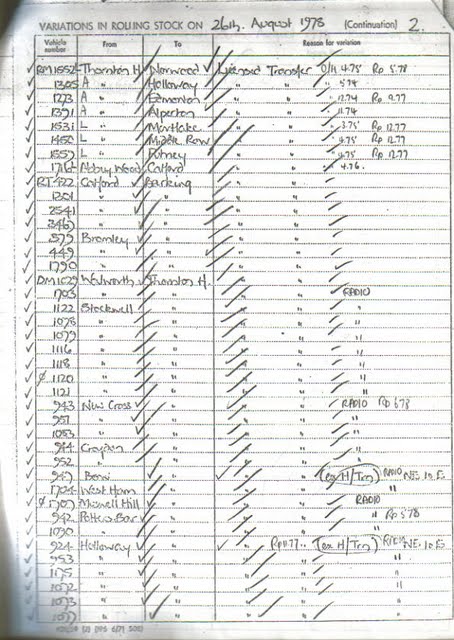 VARIATIONS IN ROLLING STOCK ON 26th. August 1978 (Continuation) 2.
Vehicle number From To Reason for variation
RM1552 Thornton H. Norwood Licensed Transfer O/H 4.75 Rp 5.78
1305 A " Holloway " " 5.74
1273 A " Edmonton " " 12.74 Rp 9.77
1391 A " Alperton " " 11.74
1531 L " Mortlake " " 3.75 Rp 12.77
1450 L " Middle Row " " 4.75 Rp 12.77
1557 L " Putney " " 4.75 Rp 12.77
1716 Abbey Wood Catford " " 4.76
RT422 Catford Barking " "
1301 " " " "
2541 " " " "
3467 " " " "
379 Bromley " " "
449 " " " "
1790 " " " "
DM1029 Walworth Thornton H. " "
1703 " " " " RADIO
1122 Stockwell " " " "
1078 " " " " "
1079 " " " " "
1116 " " " " "
1118 " " " " "
ø 1120 " " " " "
1121 " " " " "
943 New Cross " " " RADIO Rp 5.78
951 " " " " "
1053 " " " " "
944 Croydon " " " "
952 " " " " "
947 " " (ex H/Trn) RADIO NE. 10 E.
1704 West Ham " " " "
ø 1707 Muswell Hill " " " RADIO
942 Potters Bar " " " " Rp 5.78
1030 " " " "
924 Holloway " " Rp 11.77 (ex H/Trn) RADIO NE. 10 E.
953 " " " " "
1175 " " " " "
1072 " " " " "
1073 " " " " "
1077 " " " " "